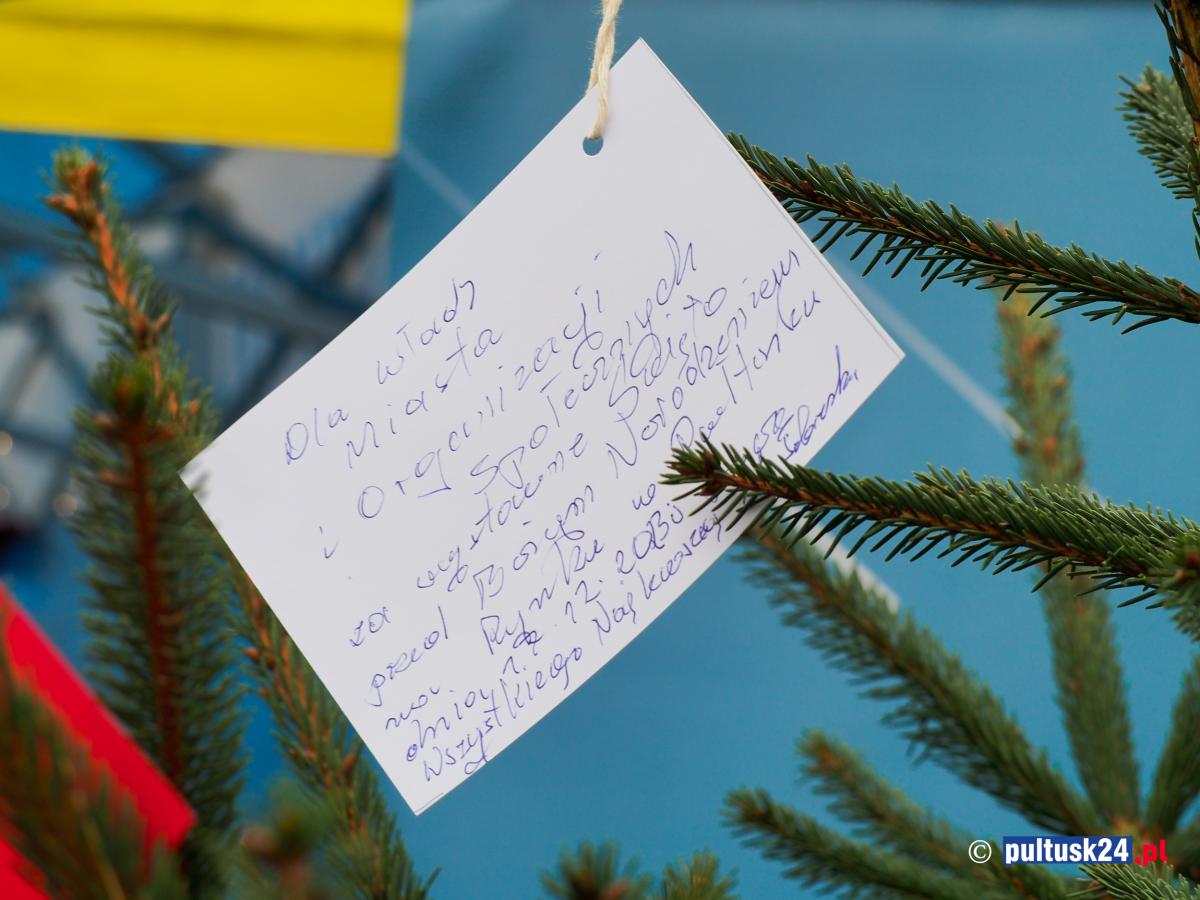 Dla władz
Miasta
i Organizacji
Społecznych
za wystawne Święto
przed Bożym Narodzeniem
na Rynku w Pułtusku
dnia 12.2023
Wszystkiego Najlepszego
© pultusk24.pl